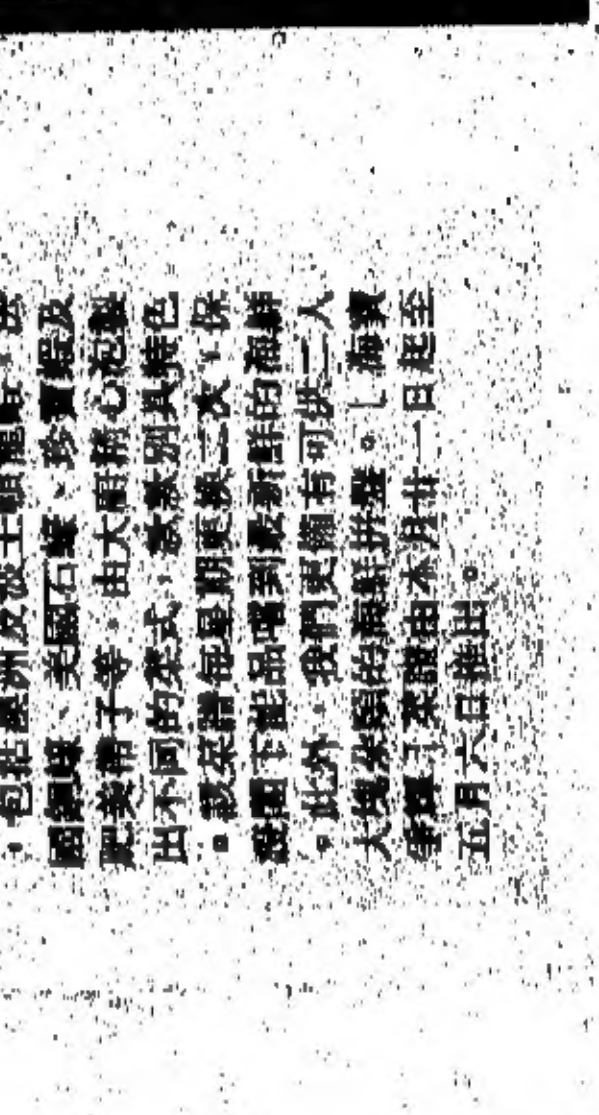 ，包括澳洲及波士頓龍蝦，法
國、美國石蟹、珍寶蝦及
肥美帶子等，由大廚精心泡製
出不同的菜式，款款別具特色
。該菜譜每星期更換二次，保
證閣下能品嚐到最新鮮的海鮮
。此外，我們更備有可供二人
大快朵頤的海鮮拼盤。「海
」菜譜由本月廿一日起至
五月六日推出。